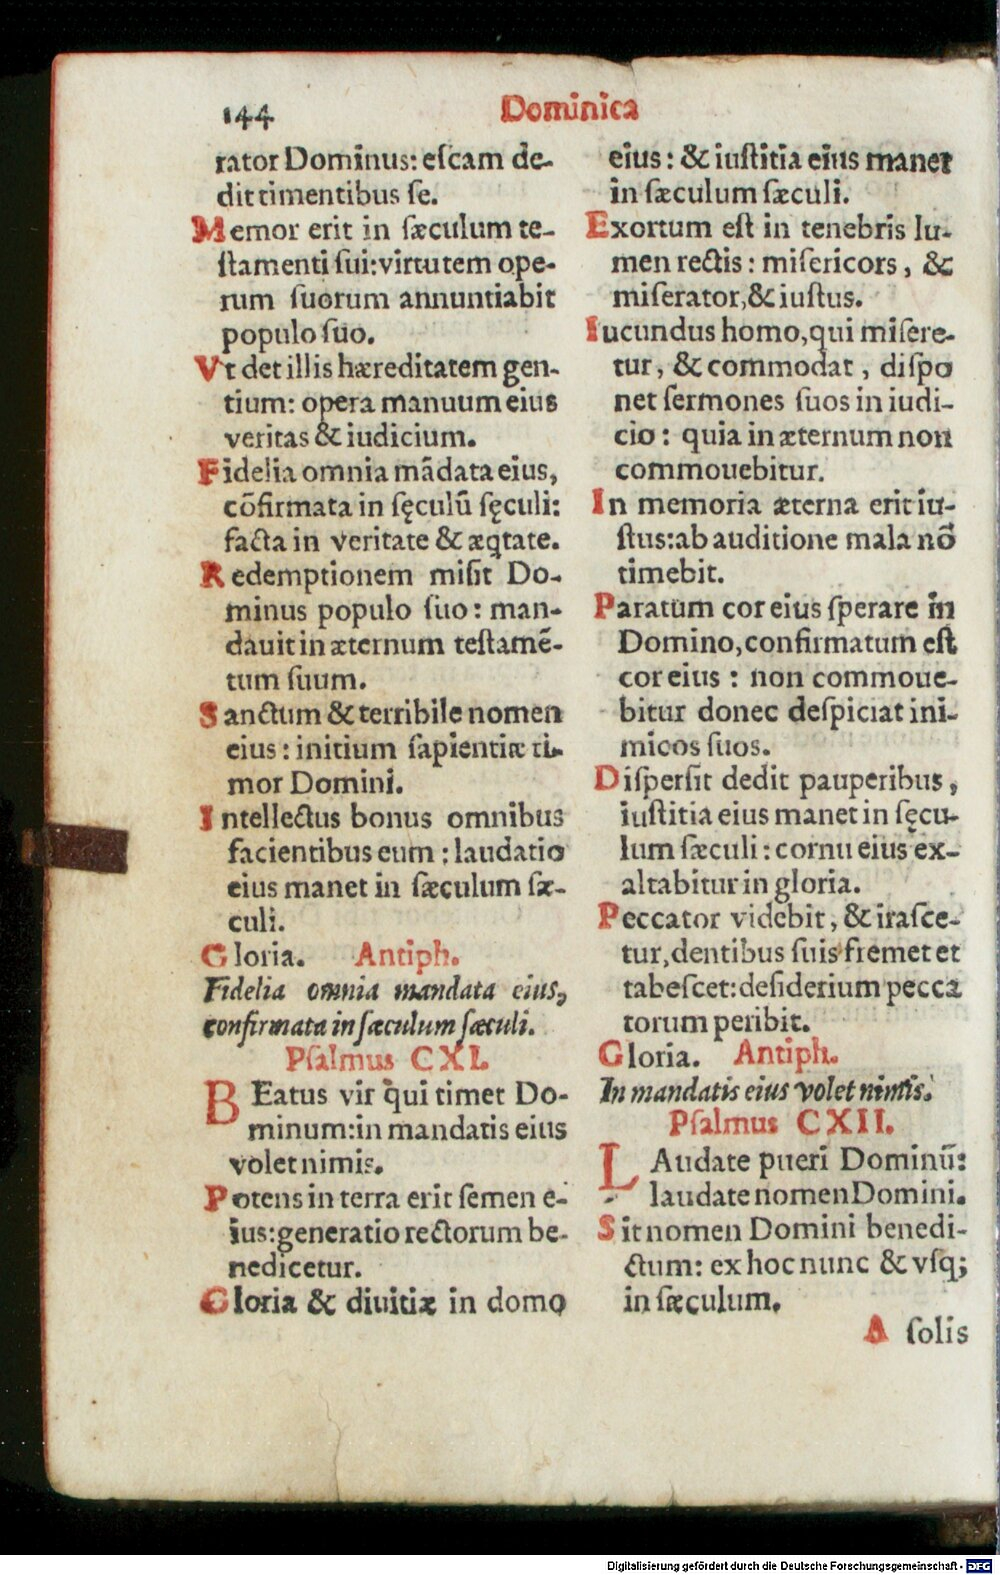 144
Dominica
rator Dominus: eſcam de-
dit timentibus ſe.
Memor erit in ſæculum te-
ſtamenti ſui: virtutem ope-
rum ſuorum annuntiabit
populo ſuo.
Vt det illis hæreditatem gen-
tium: opera manuum eius
veritas & iudicium.
Fidelia omnia mãdata eius,
cõfirmata in ſęculũ ſęculi:
facta in veritate & æq̃tate.
Redemptionem miſit Do-
minus populo ſuo: man-
dauit in æternum teſtamẽ-
tum ſuum.
Sanctum & terribile nomen
eius: initium ſapientiæ ti-
mor Domini.
Intellectus bonus omnibus
facientibus eum: laudatio
eius manet in ſæculum ſæ-
culi.
Gloria. Antiph.
Fidelia omnia mandata eius,
confirmata in ſæculum ſæculi.
Pſalmus CXI.
BEatus vir q̃ui timet Do-
minum: in mandatis eius
volet nimis.
Potens in terra erit ſemen e-
ius: generatio rectorum be-
nedicetur.
Gloria & diuitiæ in domo
eius: & iuſtitia eius manet
in ſæculum ſæculi.
Exortum eſt in tenebris lu-
men rectis: miſericors, &
miſerator, & iuſtus.
Iucundus homo, qui miſere-
tur, & commodat, diſpo
net ſermones ſuos in iudi-
cio: quia in æternum non
commouebitur.
In memoria æterna erit iu-
ſtus: ab auditione mala nõ
timebit.
Paratum cor eius ſperare in
Domino, confirmatum eſt
cor eius: non commoue-
bitur donec deſpiciat ini-
micos ſuos.
Diſperſit dedit pauperibus,
iuſtitia eius manet in ſęcu-
lum ſæculi: cornu eius ex-
altabitur in gloria.
Peccator videbit, & iraſce-
tur, dentibus ſuis fremet et
tabeſcet: deſiderium pecca
torum peribit.
Gloria. Antiph.
In mandatis eius volet nimis.
Pſalmus CXII.
LAudate pueri Dominũ:
laudate nomen Domini.
Sit nomen Domini benedi-
ctum: ex hoc nunc & vſq;
in ſæculum.
A ſolis
Digitalisierung gefördert durch die Deutsche Forschungsgemeinschaft - DFG